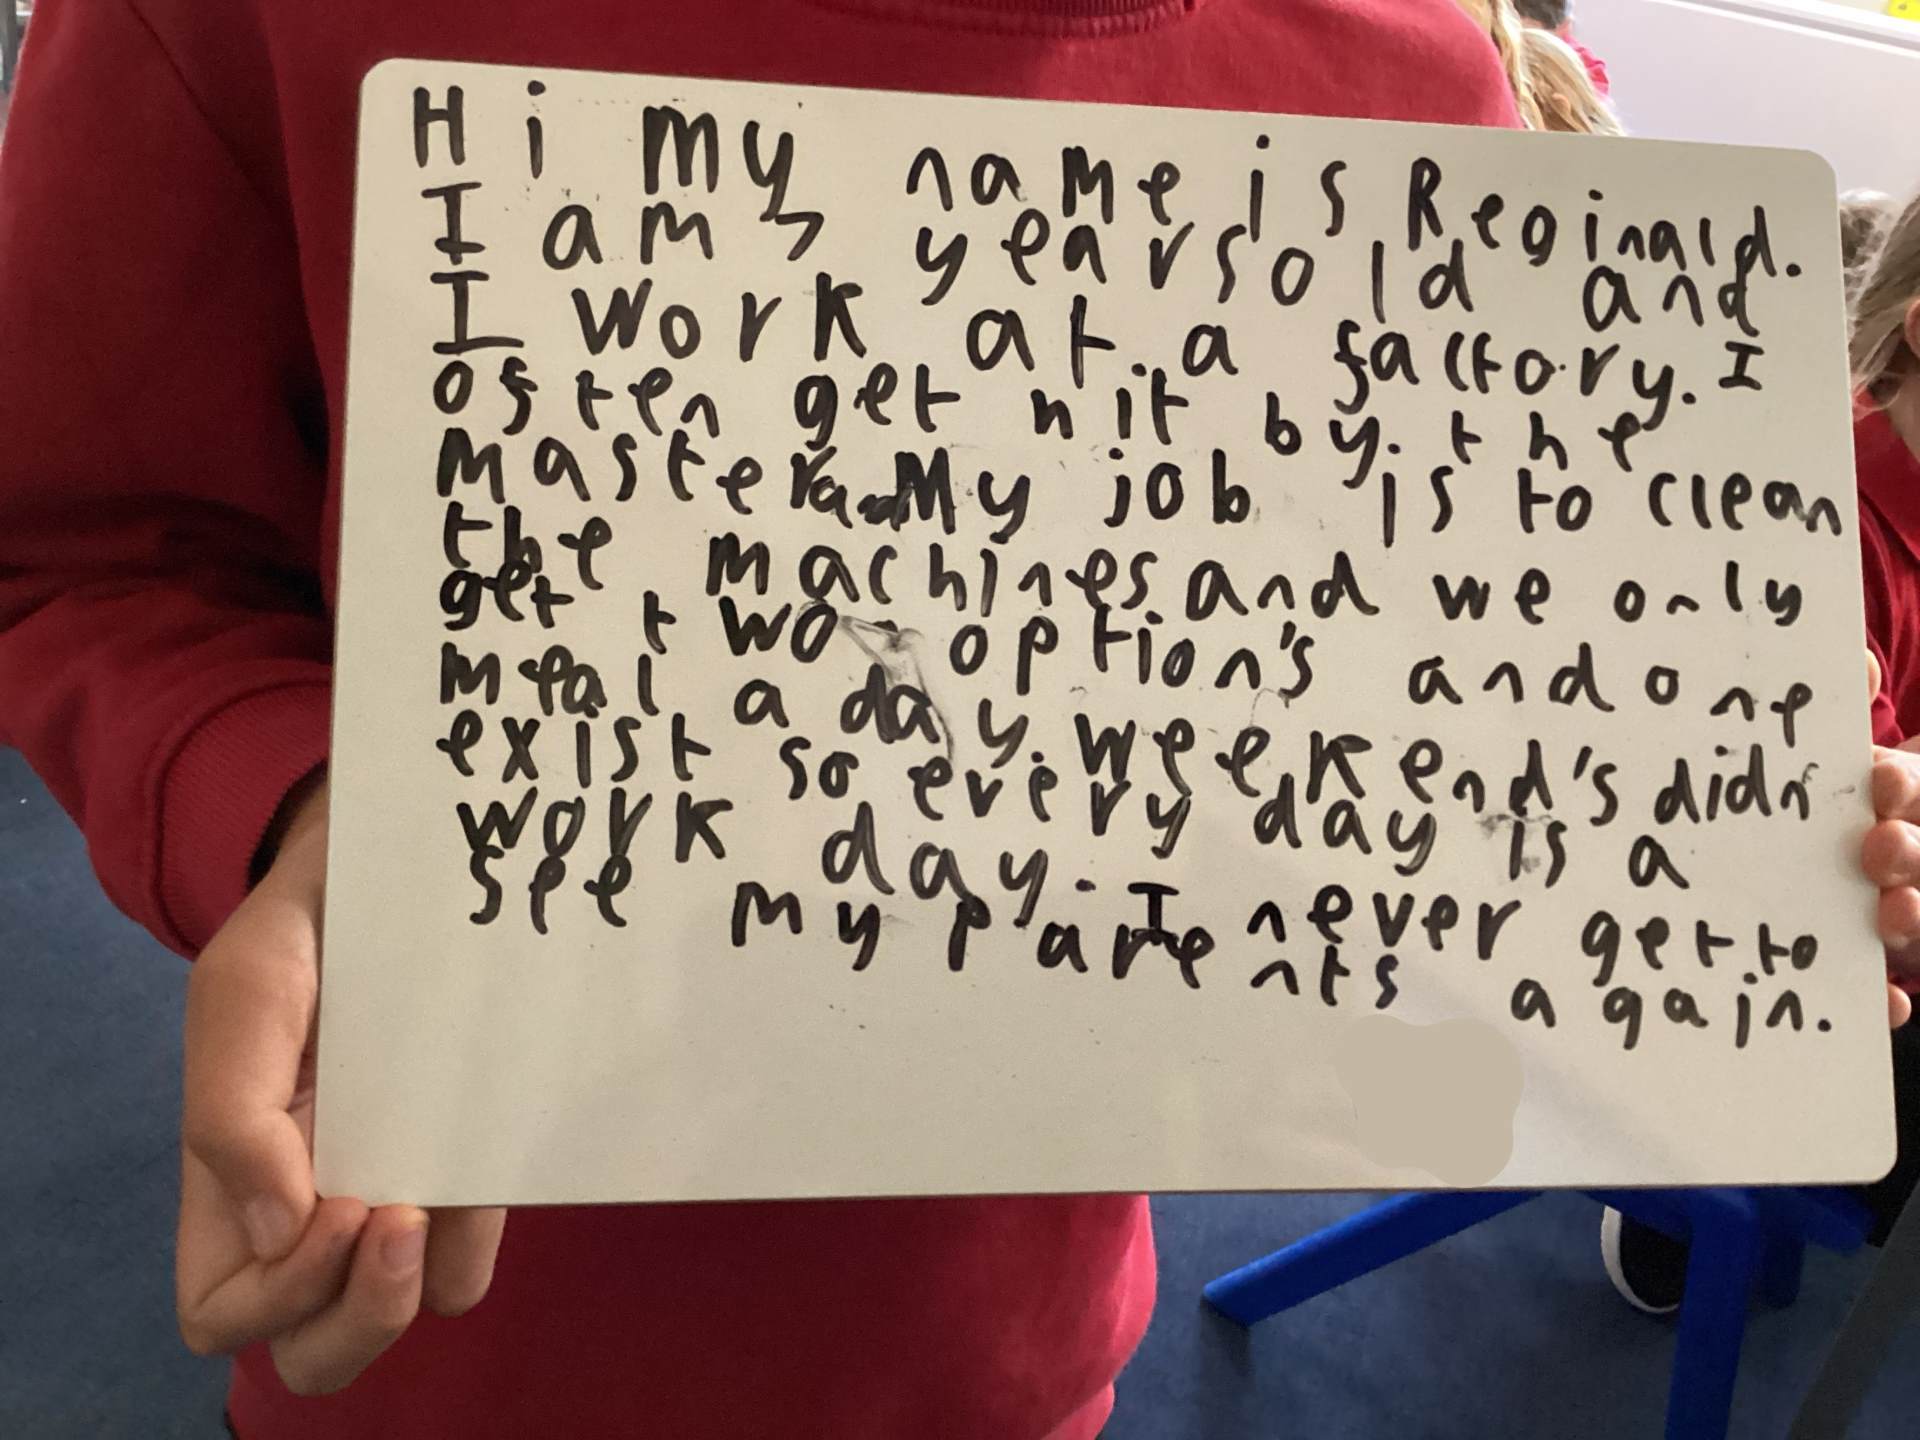 Hi my name is Reginald.
I am 7 years old and
I work at a factory. I
often get hit by. the
master and My job is to clean
the machines and we only
get two option's and one
meal a day. weekend's didn
exist so every day is a
work day. I never get to
see my parents again.